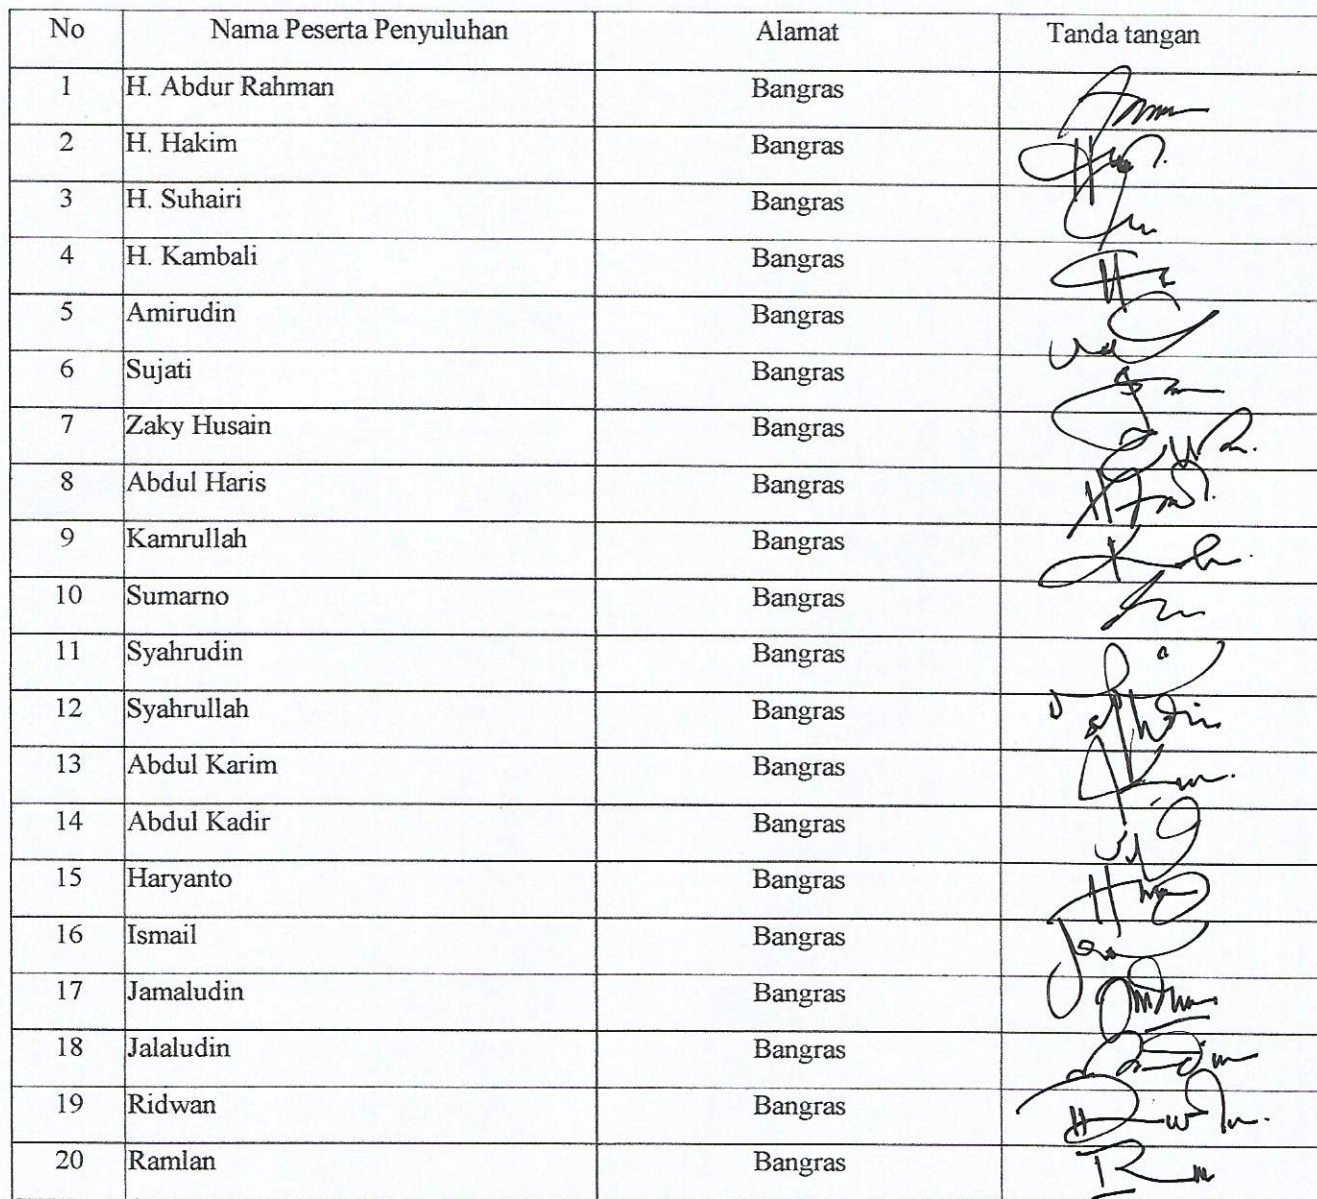 No Nama Peserta Penyuluhan Alamat Tanda tangan
1 H. Abdur Rahman Bangras
2 H. Hakim Bangras
3 H. Suhairi Bangras
4 H. Kambali Bangras
5 Amirudin Bangras
6 Sujati Bangras
7 Zaky Husain Bangras
8 Abdul Haris Bangras
9 Kamrullah Bangras
10 Sumarno Bangras
11 Syahrudin Bangras
12 Syahrullah Bangras
13 Abdul Karim Bangras
14 Abdul Kadir Bangras
15 Haryanto Bangras
16 Ismail Bangras
17 Jamaludin Bangras
18 Jalaludin Bangras
19 Ridwan Bangras
20 Ramlan Bangras